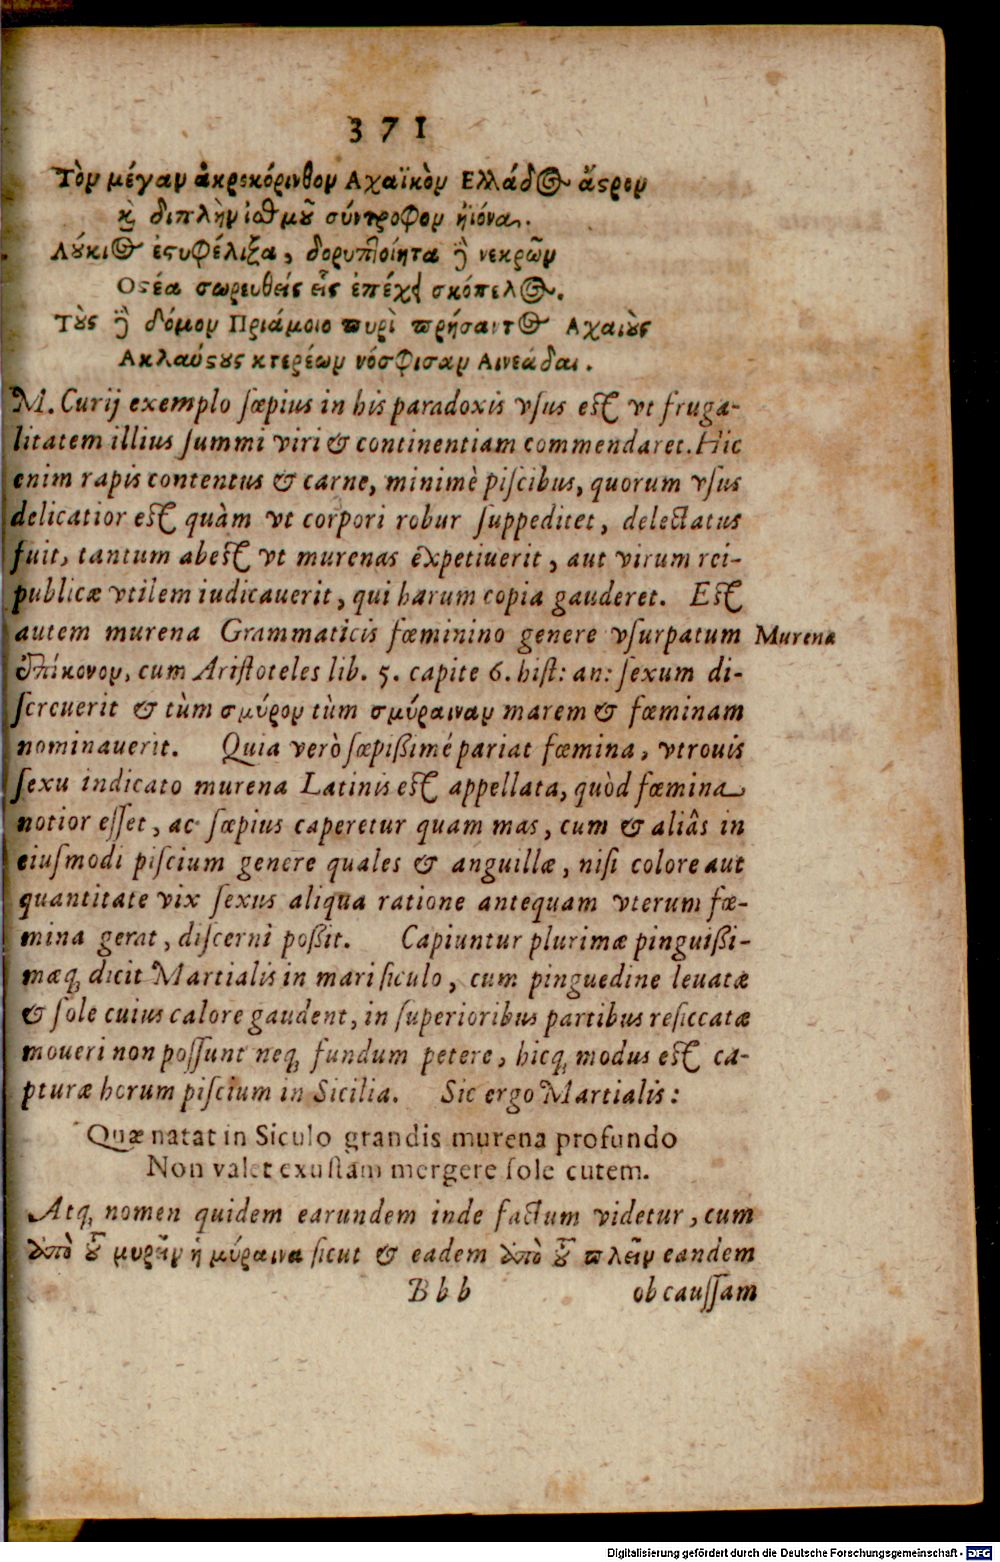 371
Τὸν μέγαν ἀκροκόρινθον Αχαϊκὸν Ελλάδος ἄστρον
καὶ διπλὴν ἰσθμοῦ σύντροφον ἠϊόνα.
Λούκιος ἐστυφέλιξα, δορυπτοίητα δὲ νεκρῶν
Οστέα σωρευθεὶς εἷς ἐπέχει σκόπελος.
Τοὺς δὲ δόμον Πριάμοιο πυρὶ πρήσαντος Αχαιοὺς
Ακλαύστους κτερέων νόσφισαν Αινεάδαι.
M. Curij exemplo sæpius in his paradoxis vsus est vt fruga-
litatem illius summi viri & continentiam commendaret. Hic
enim rapis contentus & carne, minimè piscibus, quorum vsus
delicatior est quàm vt corpori robur suppeditet, delectatus
fuit, tantum abest vt murenas expetiuerit, aut virum rei-
publicæ vtilem iudicauerit, qui harum copia gauderet. Est
autem murena Grammaticis fœminino genere vsurpatum Murena
ἐπίκοινον, cum Aristoteles lib. 5. capite 6. hist: an: sexum di-
screuerit & tùm σμύρον tùm σμύραιναν marem & fœminam
nominauerit. Quia verò sæpißimé pariat fœmina, vtrouis
sexu indicato murena Latinis est appellata, quòd fœmina
notior esset, ac sæpius caperetur quam mas, cum & aliâs in
eiusmodi piscium genere quales & anguillæ, nisi colore aut
quantitate vix sexus aliqua ratione antequam vterum fœ-
mina gerat, discerni poßit. Capiuntur plurimæ pinguißi-
mæq; dicit Martialis in mari siculo, cum pinguedine leuatæ
& sole cuius calore gaudent, in superioribus partibus resiccatæ
moueri non possunt neq; fundum petere, hicq; modus est ca-
pturæ horum piscium in Sicilia. Sic ergo Martialis:
Quæ natat in Siculo grandis murena profundo
Non valet exustam mergere sole cutem.
Atq; nomen quidem earundem inde factum videtur, cum
ἀπὸ τοῦ μυρεῖν ἡ μύραινα sicut & eadem ἀπὸ τοῦ πλεῖν eandem
Bbb ob caussam
Digitalisierung gefördert durch die Deutsche Forschungsgemeinschaft - DFG